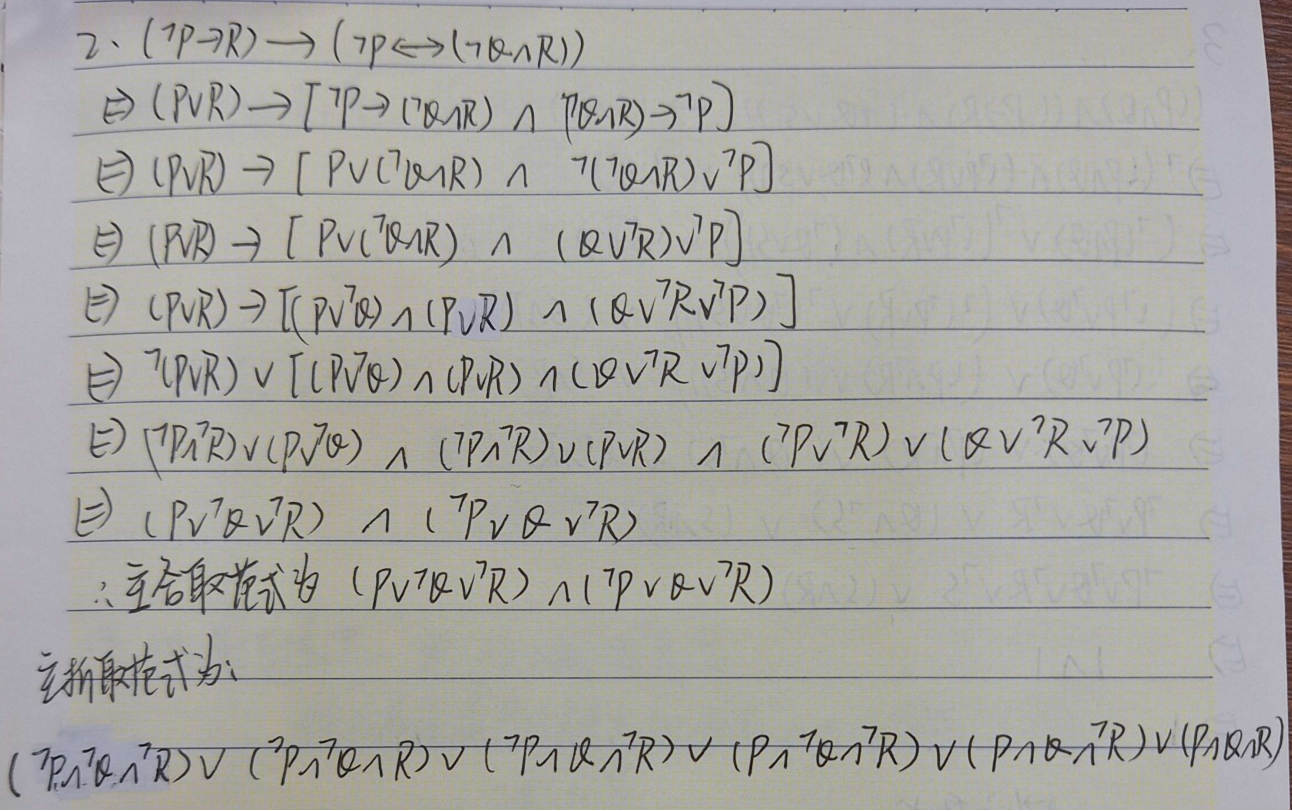 2、(¬P→R)→(¬P↔(¬Q∧R))
⇔ (P∨R)→[¬P→(¬Q∧R) ∧ (¬Q∧R)→¬P]
⇔ (P∨R)→[P∨(¬Q∧R) ∧ ¬(¬Q∧R)∨¬P]
⇔ (P∨R)→[P∨(¬Q∧R) ∧ (Q∨¬R)∨¬P]
⇔ (P∨R)→[(P∨¬Q)∧(P∨R) ∧ (Q∨¬R∨¬P)]
⇔ ¬(P∨R)∨[(P∨¬Q)∧(P∨R)∧(Q∨¬R∨¬P)]
⇔ (¬P∧¬R)∨(P∨¬Q) ∧ (¬P∧¬R)∨(P∨R) ∧ (¬P∨¬R)∨(Q∨¬R∨¬P)
⇔ (P∨¬Q∨¬R) ∧ (¬P∨Q∨¬R)
∴主合取范式为 (P∨¬Q∨¬R)∧(¬P∨Q∨¬R)
主析取范式为:
(¬P∧¬Q∧¬R)∨(¬P∧¬Q∧R)∨(¬P∧Q∧¬R)∨(P∧¬Q∧¬R)∨(P∧Q∧¬R)∨(P∧Q∧R)